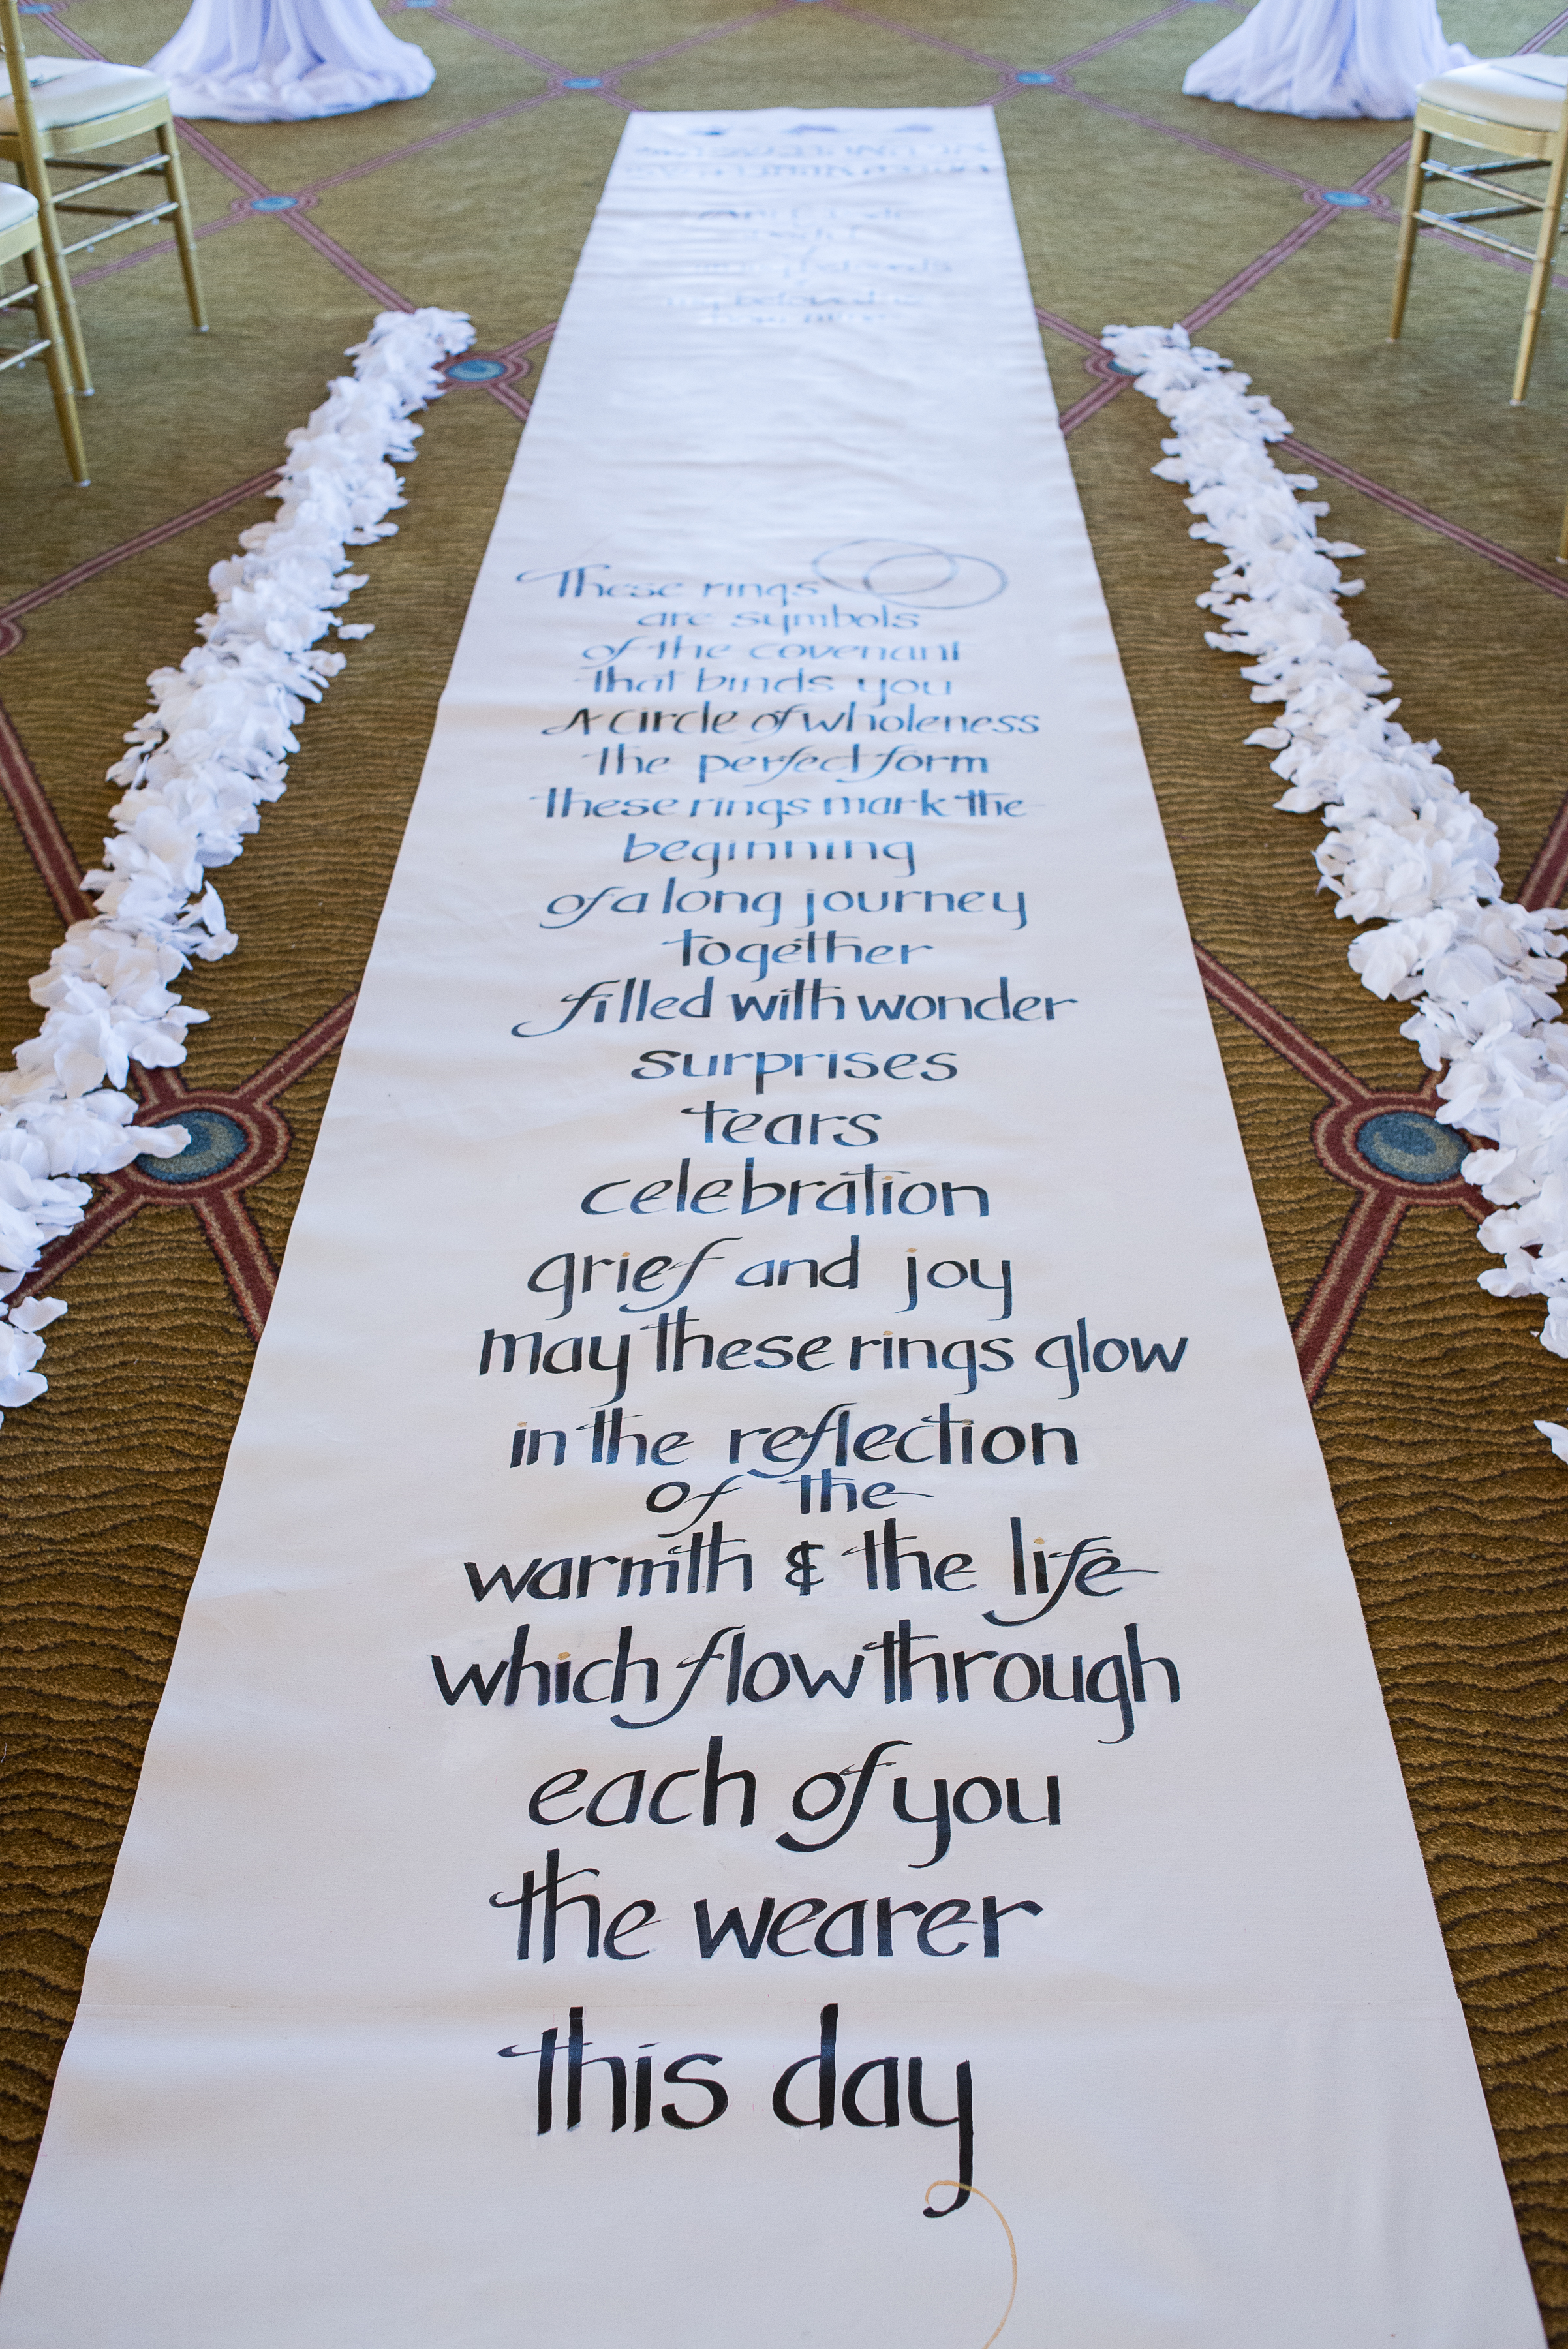 These rings
are symbols
of the covenant
that binds you
A circle of wholeness
the perfect form
these rings mark the
beginning
of a long journey
together
filled with wonder
surprises
tears
celebration
grief and joy
may these rings glow
in the reflection
of the
warmth & the life
which flow through
each of you
the wearer
this day